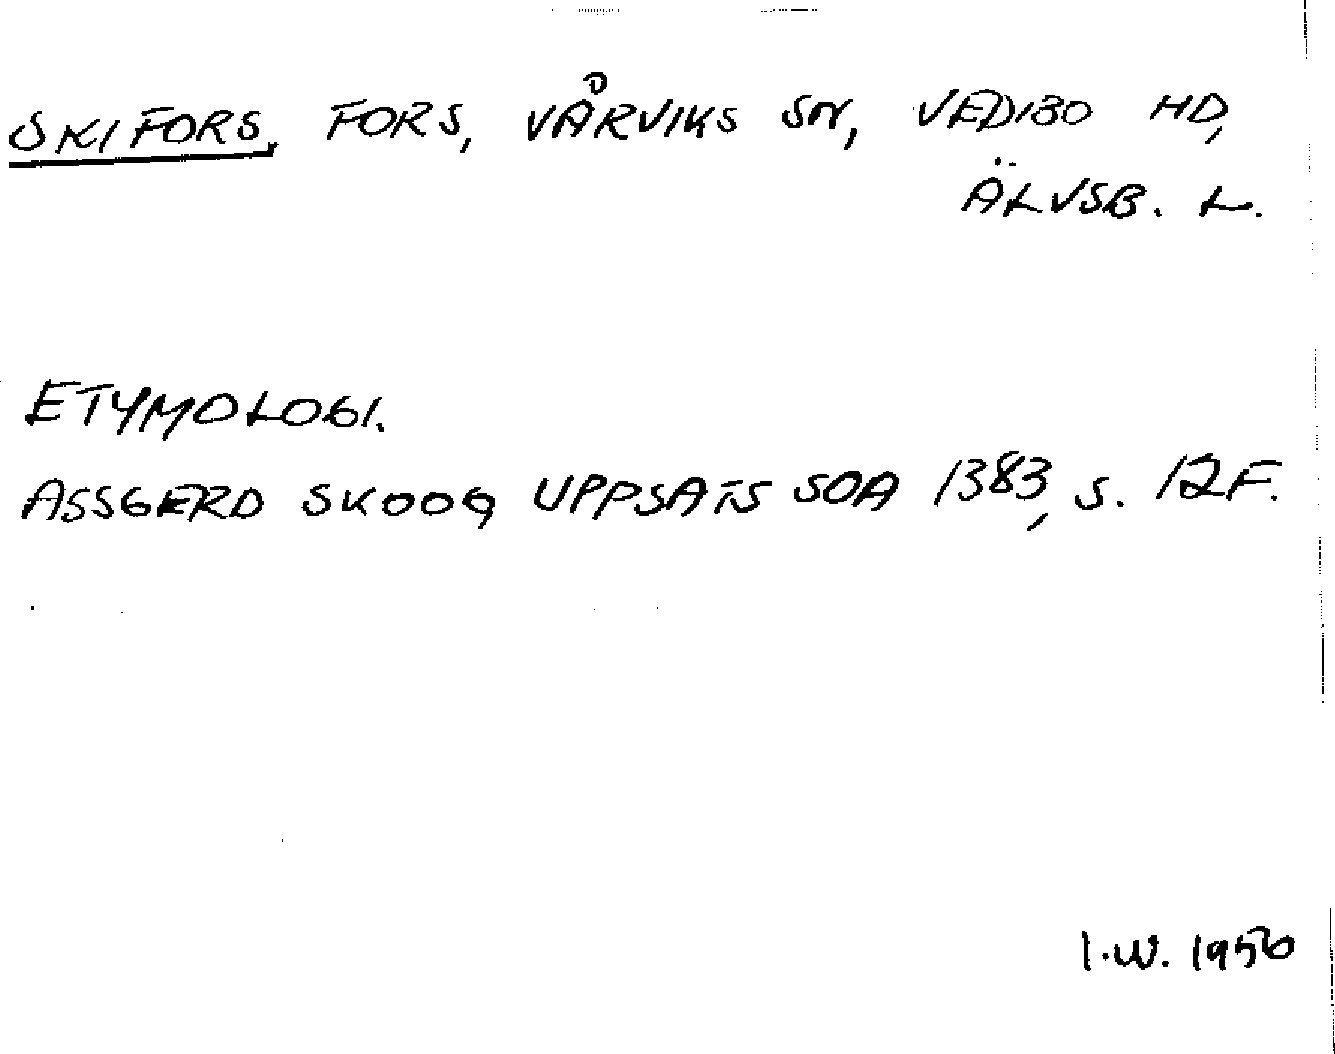 SKIFORS, FORS, VÅRVIKS SN, VEDBO HD,
ÄLVSB. L.
ETYMOLOGI.
ASSGERD SKOOG UPPSATS SOA 1383, S. 12F.
I.W. 1956